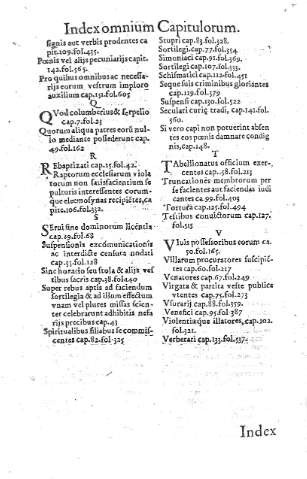 Index omnium Capitulorum.
signis aut verbis prodentes ca
pit.109.fol.435.
Poenis vel alijs pecuniarijs capit.
142.fol.565.
Pro quibus omnibus ac necessa-
rijs eorum vestrum imploro
auxilium cap.151.fol.605
Q
Quod columbarius &
cap.7.fol.25
Quorum aliqua patres eorū nul-
lo mediante possederunt cap.
49.fol.162
R
Rebaptizati cap.15.fol.42.
Raptorum ecclesiarum viola
torum non satisfacientium se
pulturis interessentes eorum-
que eleemosynas recipiētes, ca
pite.106.fol.332.
S
Serui sine dominorum licētia
cap.19.fol.68
Suspensionis excommunicationis
ac interdicte censura nodati
cap.53.fol.128
Sine horario seu stola & alijs ves
tibus sacris cap.58.fol.440
Super rebus aptis ad faciendum
sortilegia & ad illum effectum
vnam vel plures missas scien-
ter celebrarunt adhibitis nefa
rijs precibus cap.43
Spiritualibus filiabus se commis-
centes cap.82.fol.325
Stupri cap.83.fol.328.
Sortilegi cap.77.fol.354.
Simoniaci cap.91.fol.369.
Sortilegi cap.107.fol.333.
Schismatici cap.112.fol.451
Seque suis criminibus gloriantes
cap.119.fol.379
Suspensis cap.130.fol.522
Seculari curię tradi, cap.141.fol.
560.
Si vero capi non potuerint absen
tes eos poenis damnare condig
nis, cap.148.
T
Tabellionatus officium exer-
centes cap.58.fol.215
Truncationes membrorum per
se facientes aut faciendas iudi
cantes ca.99.fol.403
Tortura cap.125.fol.494
Testibus conductorum cap.127.
fol.515
V
Vi suis possessoribus eorum ca.
50.fol.165.
Villarum procuratores suscipiē-
tes cap.60.fol.217
Venatores cap.67.fol.249
Virgata & partita veste publice
vtentes cap.75.fol.273
Vsurarij cap.88.fol.559.
Venefici cap.95.fol 387
Violentiaque illatores, cap.202.
fol.321.
Verberari cap.133.fol.537.
Index